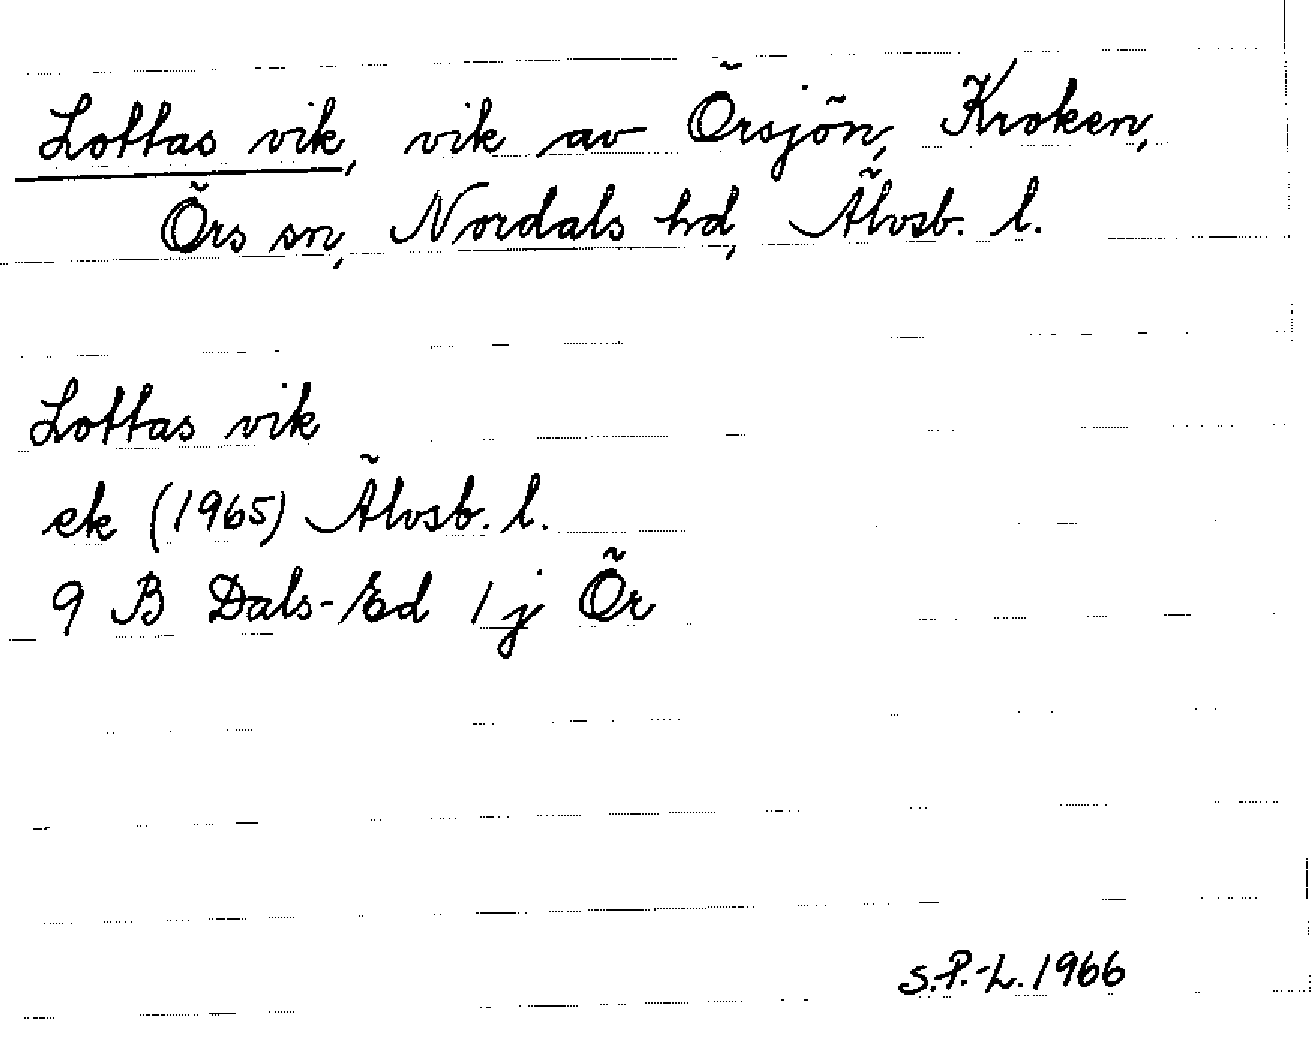 Lottas vik, vik av Örsjön, Kroken,
Örs sn, Nordals hd, Älvsb. l.
Lottas vik
ek (1965) Älvsb. l.
9 B Dals-Ed 1 j Ör
S.P.-L. 1966